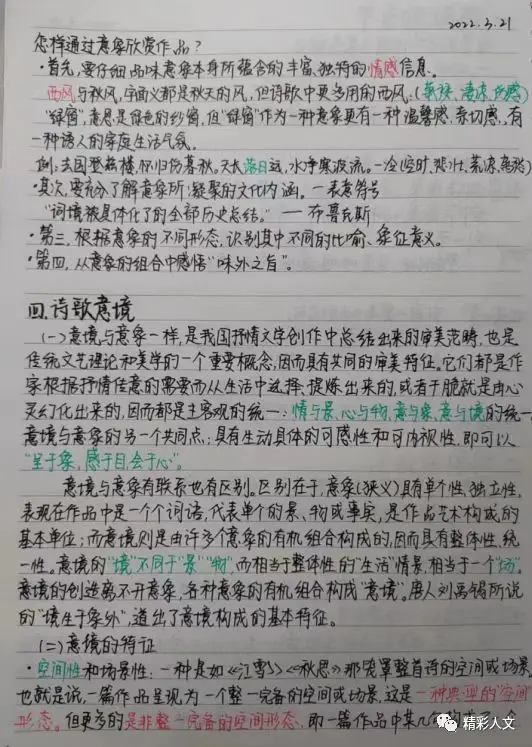 2022.3.21
怎样通过意象欣赏作品?
·首先,要仔细品味意象本身所蕴含的丰富、独特的情感信息。
西风与秋风,字面义都是秋天的风,但诗歌中更多用的西风.(萧瑟、凄凉,伤感)
"绿窗",意思是绿色的纱窗,但"绿窗"作为一种意象更有一种温馨感、亲切感,有
一种诱人的家庭生活气氛。
例:去国登兹楼,怀归伤暮秋。天长落日远,水净寒波流。—冷(空时,悲壮、荒凉、离愁)
·其次,要充分了解意象所凝聚的文化内涵。—表意符号
"词境被具体化了的全部历史总结。" —布鲁克斯
·第三,根据意象的不同形态,识别其中不同的比喻、象征意义。
·第四,从意象的组合中感悟"味外之旨"。
四.诗歌意境
(一)意境与意象一样,是我国抒情文学创作中总结出来的审美范畴,也是
传统文艺理论和美学的一个重要概念,因而具有共同的审美特征。它们都是作
家根据抒情任意的需要而从生活中选择、提炼出来的,或者干脆就是由心
灵幻化出来的,因而都是主客观的统一:情与景、心与物,意与象、意与境的统一
意境与意象的另一个共同点:具有生动具体的可感性和可内视性,即可以
"呈于象,感于目,会于心"。
意境与意象有联系也有区别。区别在于,意象(狭义)具有单个性、独立性,
表现在作品中是一个个词语,代表单个的景、物或事实,是作品艺术构成的
基本单位;而意境则是由许多个意象的有机组合构成的,因而具有整体性、统
一性。意境的"境"不同于"景""物",而相当于整体性的"生活"情景,相当于一个"场"。
意境的创造离不开意象,各种意象的有机组合构成"意境"。唐人刘禹锡所说
的"境生于象外",道出了意境构成的基本特征。
(二)意境的特征
·空间性和场景性:一种是如《江雪》《秋思》那笼罩整首诗的空间或场景,
也就是说,一篇作品呈现为一个整一完备的空间或场景,这是一种典型的"空间
形态。但更多的是非整一完备的空间形态,取一篇作品中某几
精彩人文